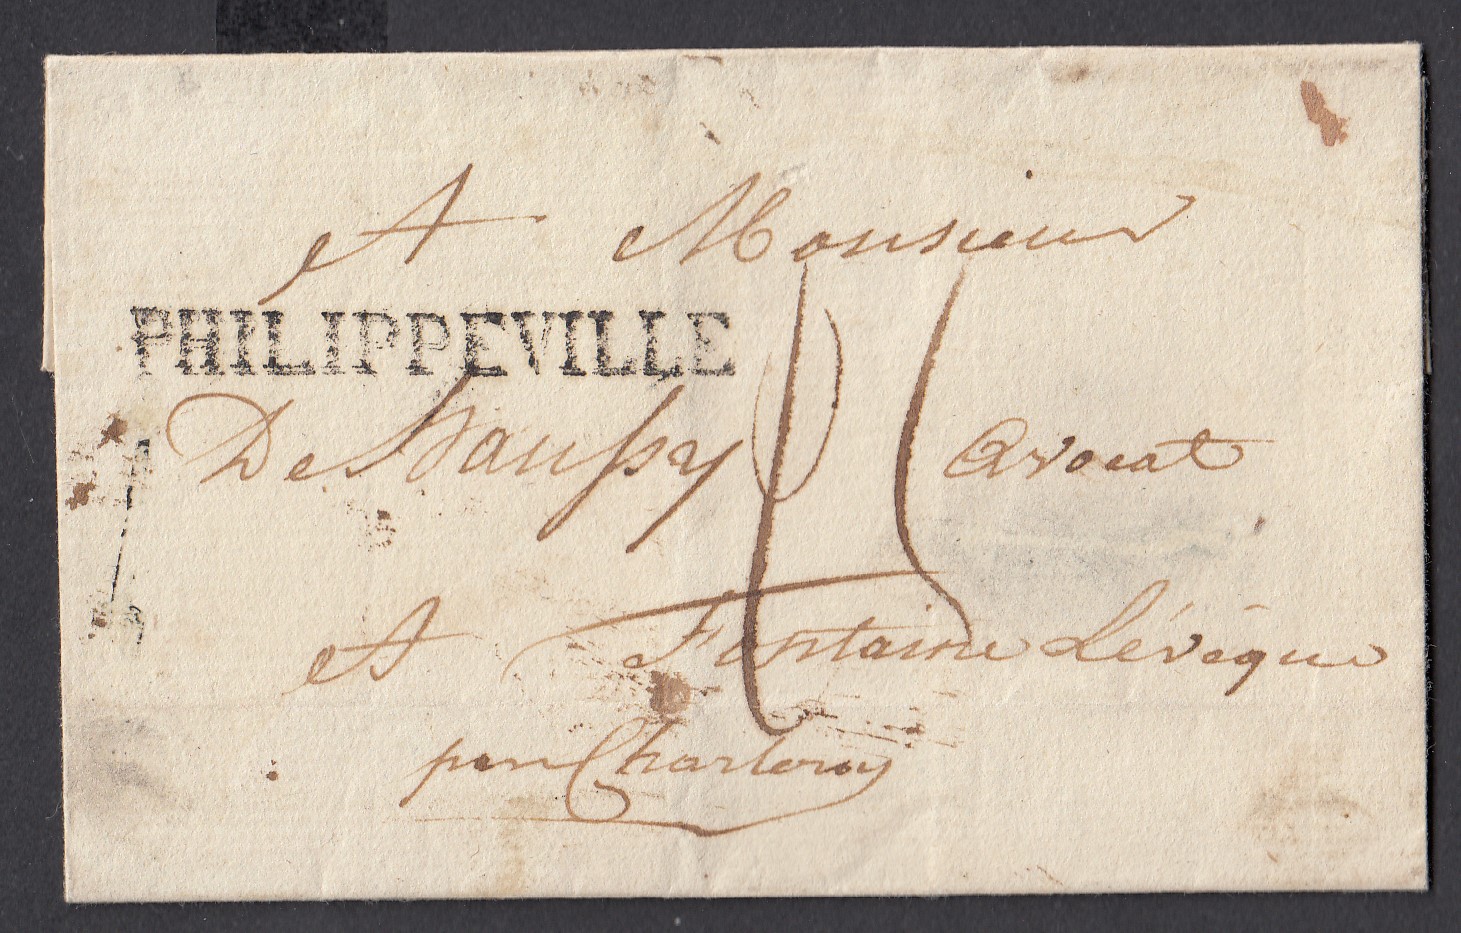 A Monsieur
PHILIPPEVILLE
De avocat
A Fontaine Lévêque
par Charleroy